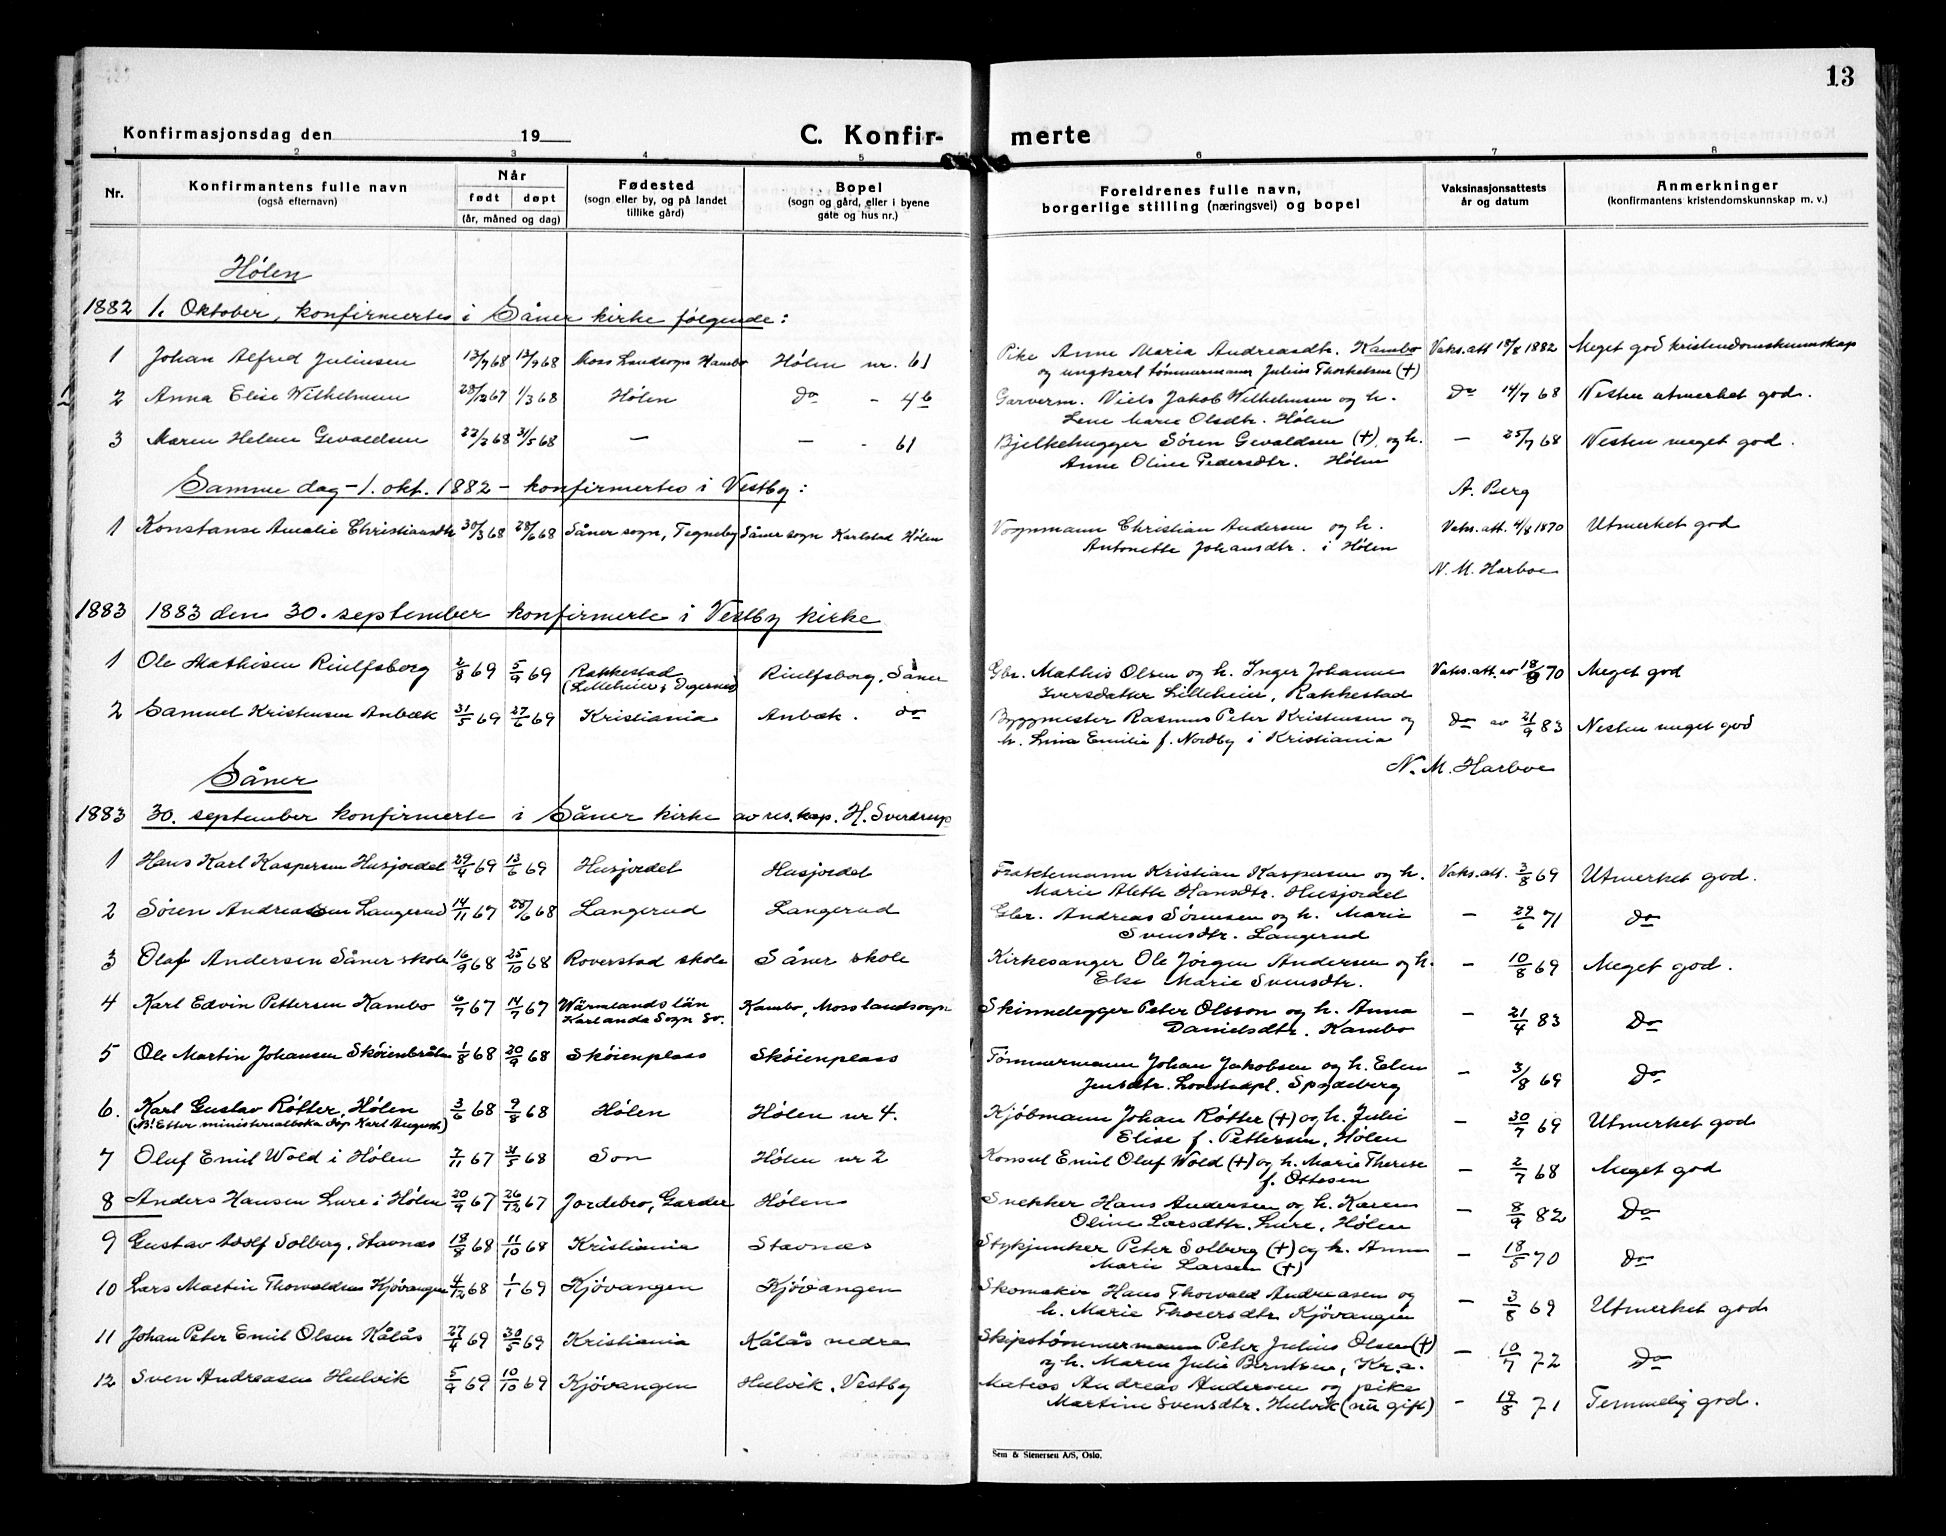 13
Konfirmasjonsdag den 19
C. Konfir-
merte
1 2 3 4 5 6 7 8
Nr. Konfirmantens fulle navn (også efternavn) Når født døpt (år, måned og dag) Fødested (sogn eller by, og på landet tillike gård) Bopel (sogn og gård, eller i byene gate og hus nr.) Foreldrenes fulle navn, borgerlige stilling (næringsvei) og bopel Vaksinasjonsattests år og datum Anmerkninger (konfirmantens kristendomskunnskap m. v.)
Hølen
1882 1. Oktober, konfirmertes i Såner kirke følgende:
1 Johan Alfred Juliusen 13/7 68 13/9 68 Moss Landsogn Kambo Hølen nr. 61 Pike Anne Maria Andreasdtr. Kambo Vaks.att 18/8 1882 Meget god kristendomskunnskap
og ungkarl tømmermann Julius Thorkelsen (+)
2 Anna Elise Wilhelmsen 28/12 67 1/3 68 Hølen do - 4b Garverm. Niels Jakob Wilhelmsen og h. do 14/7 68 Nesten utmerket god.
Lene Marie Olsdtr. Hølen
3 Maren Helene Gevaldsen 22/2 68 31/5 68 — — - 61 Bjelkehugger Søren Gevaldsen (+) og h. — 25/7 68 Nesten meget god.
Anne Oline Pedersdtr. Hølen
Samme dag - 1. okt. 1882 - konfirmertes i Vestby: A. Berg
1 Konstanse Amalie Christiansdtr 30/3 68 28/6 68 Såner sogn, Tegneby Såner sogn Karlstad Hølen Vognmann Christian Andersen og h. Vaks.att. 4/8 1870 Utmerket god
Antonette Johansdtr. i Hølen
N. M. Harboe
1883 1883 den 30. september konfirmerte i Vestby kirke
1 Ole Mathisen Riulfsborg 2/8 69 5/9 69 Rakkestad (Lilleheier i Degernes) Riulfsborg, Såner Gbr. Mathis Olsen og h. Inger Johanne Vaks.att. av 18/8 70 Meget god
Iversdatter Lilleheier, Rakkestad
2 Samuel Kristensen Anbæk 31/5 69 27/6 69 Kristiania Anbæk. do Byggmester Rasmus Peter Kristensen og do av 21/9 83 Nesten meget god
h. Lina Emilie f. Nordby i Kristiania
N. M. Harboe
Såner
1883 30. september konfirmerte i Såner kirke av res.kap. H. Sverdrup
1 Hans Karl Kaspersen Husjordet 29/4 69 13/6 69 Husjordet Husjordet Fraktemann Kristian Kaspersen og h. Vaks.att. 3/8 69 Utmerket god.
Marie Alette Hansdtr. Husjordet
2 Søren Andreassen Langerud 14/11 67 28/6 68 Langerud Langerud Gbr. Andreas Sørensen og h. Marie — 29/6 71 do
Svensdtr. Langerud
3 Olaf Andersen Såner skole 16/9 68 25/10 68 Roverstad skole Såner skole Kirkesanger Ole Jørgen Andersen og h. — 10/8 69 Meget god.
Else Marie Svensdtr.
4 Karl Edvin Pettersen Kambo 6/7 67 14/7 67 Wärmlands län Karlanda Sogn Sv. Kambo, Moss landsogn Skinnelegger Peter Olsson og h. Anna — 21/4 83 Do
Danielsdtr. Kambo
5 Ole Martin Johansen Skøienbråten 1/8 68 20/9 68 Skøienplass Skøienplass Tømmermann Johan Jakobsen og h. Elen — 3/8 69 Do
Jensdtr. Spydeberg
6. Karl Gustav Røtter, Hølen 3/6 68 9/8 68 Hølen Hølen nr 4. Kjøbmann Johan Røtter (+) og h. Julie — 30/7 69 Utmerket god
(B! Etter ministerialboka døp Karl August) Elise f. Pettersen, Hølen
7 Oluf Emil Wold i Hølen 2/11 67 31/5 68 Son Hølen nr 2 Konsul Emil Oluf Wold (+) og h. Marie Therese — 2/7 68 Meget god
f. Ottesen
8 Anders Hansen Lure i Hølen 20/9 67 26/12 67 Jordebro, Garder Hølen Snekker Hans Andersen og h. Karen — 8/9 82 Do
Oline Larsdtr. Lure, Hølen
9 Gustav Adolf Solberg, Stavnæs 18/8 68 11/10 68 Kristiania Stavnæs Stykjunker Peter Solberg (+) og h. Anne — 18/5 70 do
Marie Larsen (+)
10 Lars Martin Thorvaldsen Kjøvangen 4/12 68 1/1 69 Kjøvangen Kjøvangen Skomaker Hans Thorvald Andreasen og — 3/8 69 Utmerket god
h. Marie Thoresdtr Kjøvangen
11 Johan Peter Emil Olsen Kålås 27/4 69 30/5 69 Kristiania Kålås nedre Skipstømmermann Peter Julius Olsen (+) — 10/7 72 Do
og h. Maren Julie Berntsen, Kr.a.
12 Sven Andreasen Hulvik 5/9 69 10/10 69 Kjøvangen Hulvik, Vestby Matros Andreas Andersen og pike — 19/8 71 Temmelig god.
Martine Svensdtr. Hulvik (nu gift)
Sem & Stenersen A/S, Oslo.